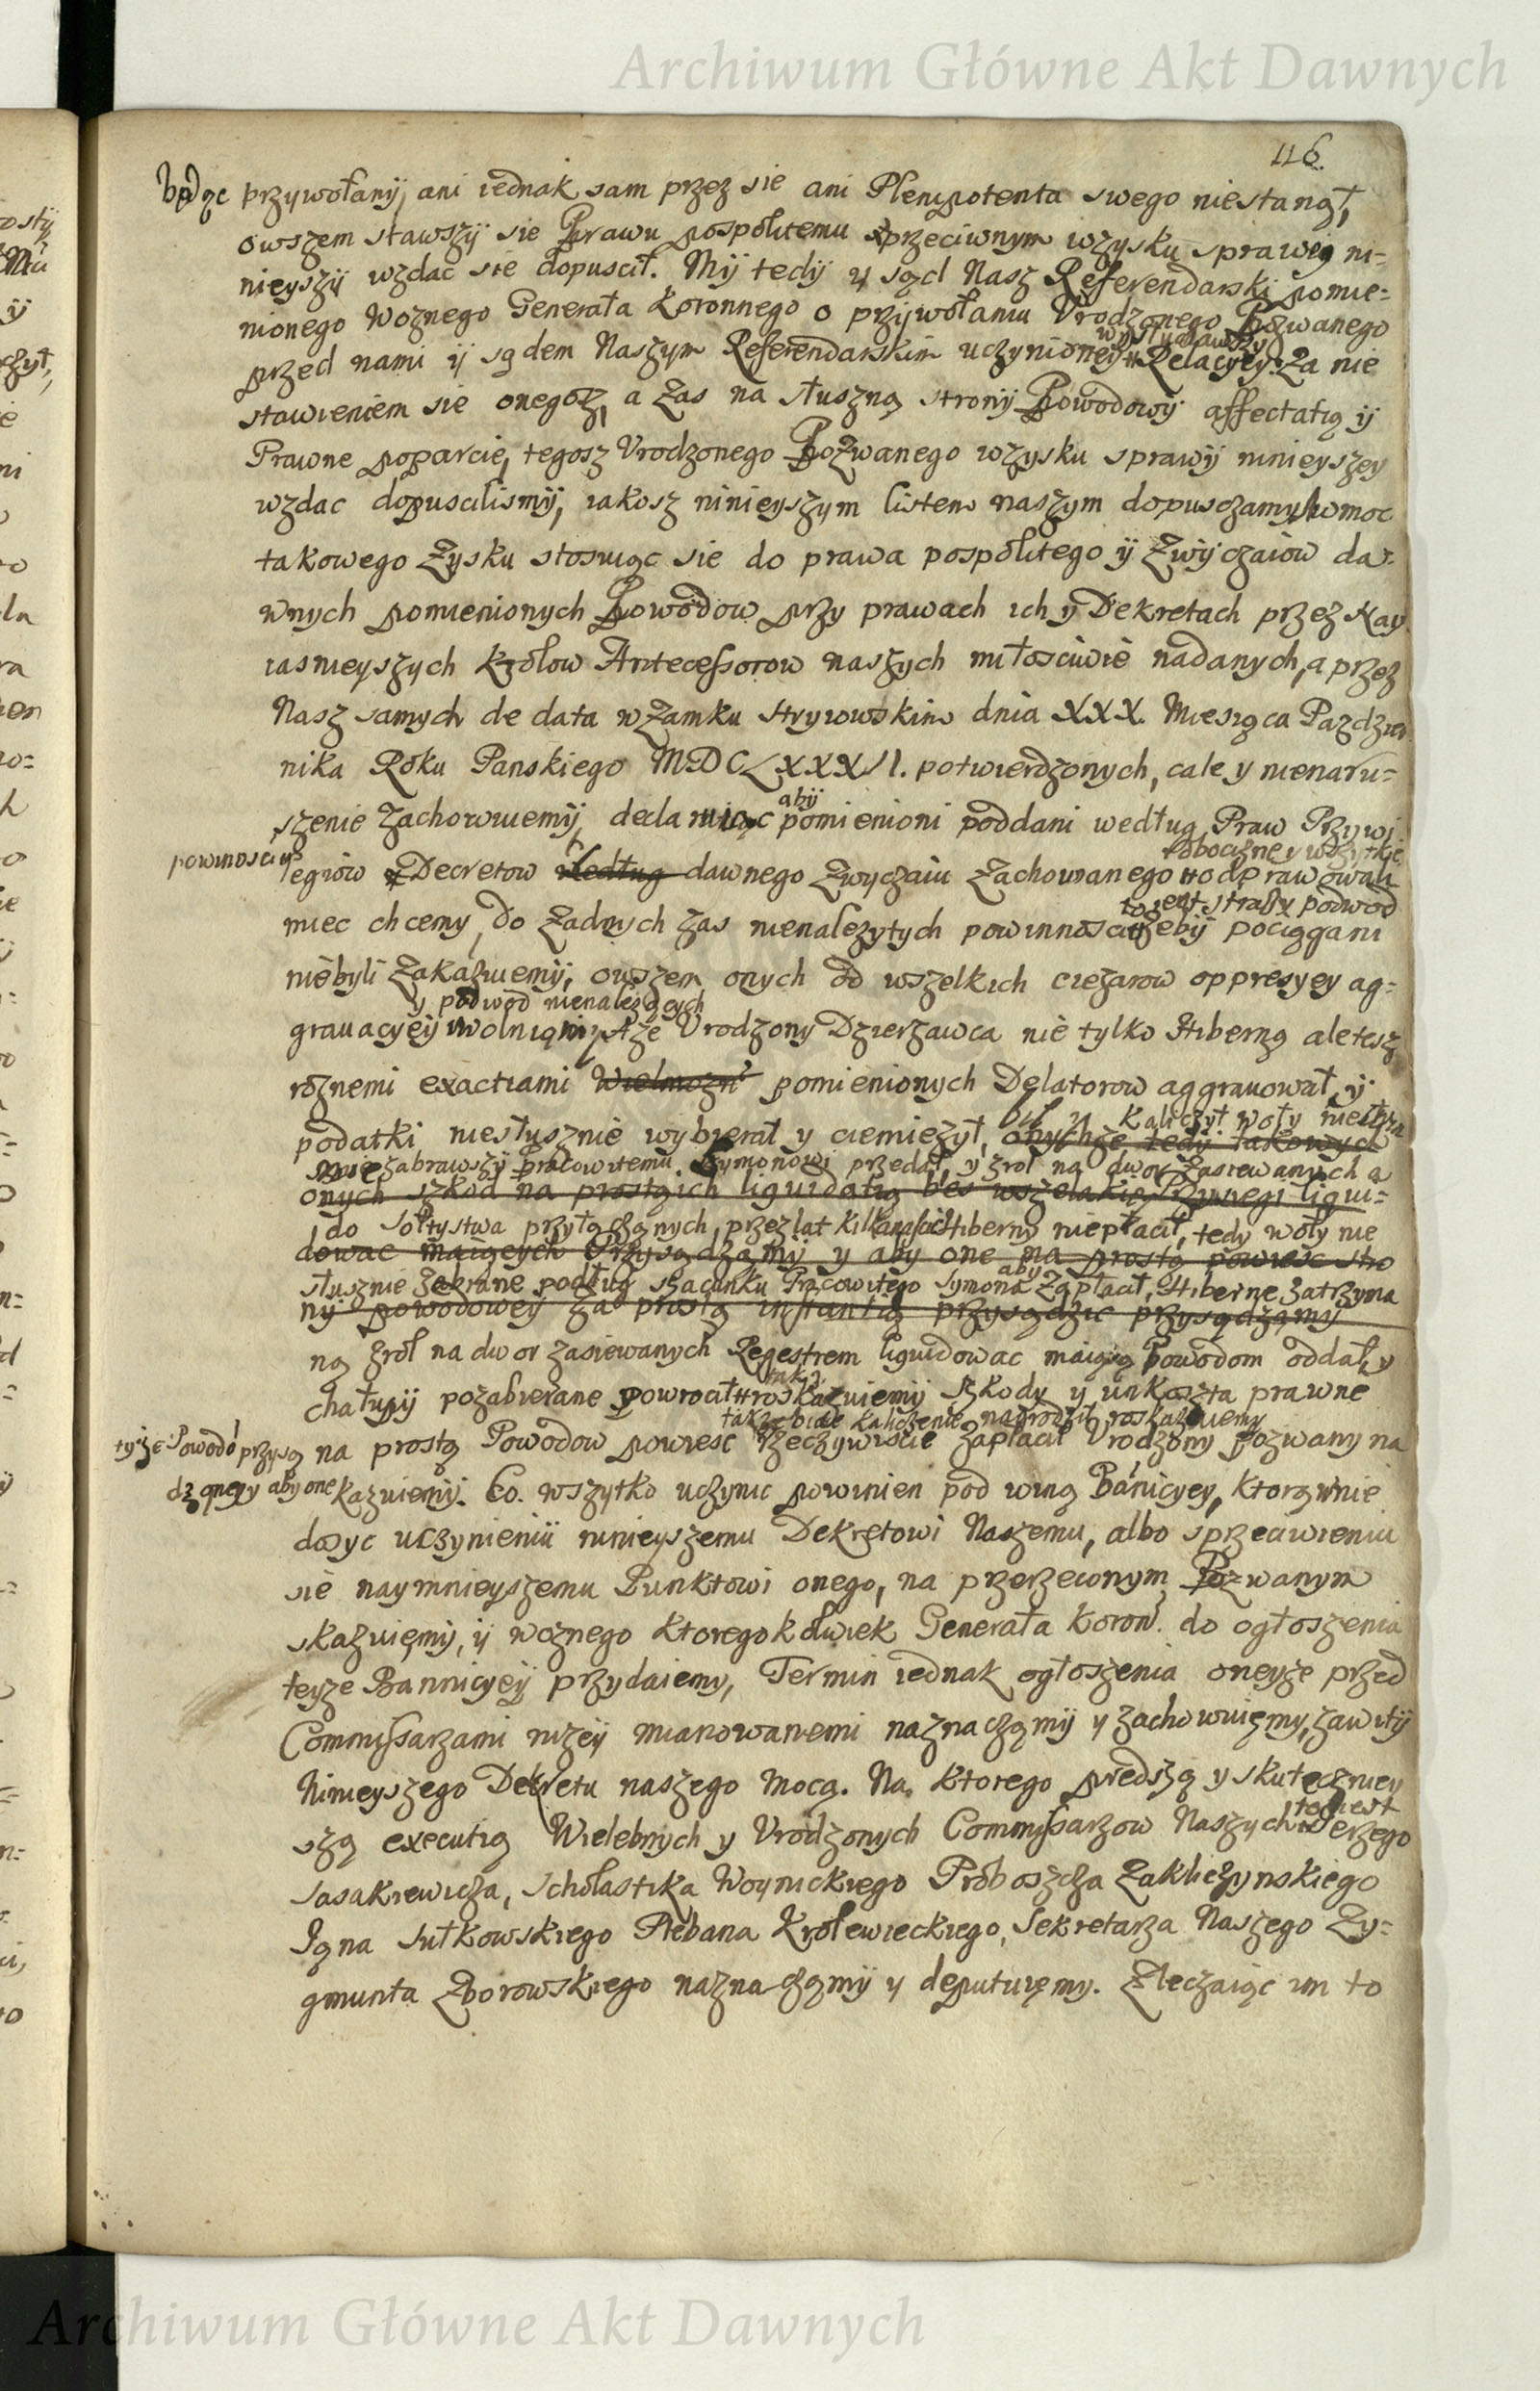 Archiwum Główne Akt Dawnych
116.
będąc przywołany, ani iednak sam przez sie ani Plenipotenta swego niestanął,
owszem stawszy sie Prawu pospolitemu sprzeciwnym wzysku sprawy ni-
nieyszy wzdac sie dopuscił. My tedy y sąd Nasz Referendarski pomie-
nionego Woznego Generała Koronnego o przywołaniu Urodzonego Pozwanego
wysłuchawszy
przed nami y sądem Naszym Referendarskim uczynioney Relacyey: Za nie
stawieniem sie onegoz, a Zas na słuszną strony Powodowy affectatią y
Prawne poparcie, tegosz Urodzonego Pozwanego wzysku sprawy ninieyszey
wzdac dopuscilismy, iakosz ninieyszym listem naszym dopusczamy, wmoc
takowego Zysku stosuiąc sie do prawa pospolitego y Zwyczaiow da-
wnych pomienionych Powodow przy prawach ich y Dekretach przez Nay
iasnieyszych Krolow Antecessorow naszych miłosciwie nadanych, a przez
Nasz samych de data w Zamku Stryiowskim dnia XXX. Miesiąca Pazdzier
nika Roku Panskiego MDCLXXXII. potwierdzonych, cale y nienaru-
aby
szenie zachowuiemy, declaruiąc pomienioni poddani według Praw Przywi
robociznę y wszytkie
powinosci
legiow y Decretow według dawnego Zwyczaiu Zachowanego odprawowali
to iest strazy podwod
miec chcemy, do Zadnych zas nienalezytych powinnosci zeby pociągani
niebyli Zakazuiemy, owszem onych od wszelkich ciezarow oppresyey ag-
y podwod nienalezących
grauacyey uwolniamy, Aże Urodzony Dzierzawca nie tylko Hiberną ale tesz
roznemi exactiami Wielmozn pomienionych Delatorow aggrauował, y
bił y Kaliczył woły niesłu
podatki niesłusznie wybierał y ciemiezył, onychze tedy takowych
sznie zabrawszy Pracowitemu Symonowi przedał, y zrol na dwor Zasiewanych a
onych szkod na prostą ich liquidatią bes wszelakiey Przysiegi liqui-
do Sołtystwa przyłączonych przez lat Kilkanascie Hiberny niepłacił, tedy woły nie
dowac maiących Przysądzamy y aby one na prostą powiesc stro
aby
słusznie zebrane podług szacunku Pracowitego Symona Zapłacił, Hibernę zatrzyma
ny powodowey za prostą instantią przysądzic przysądzamy
ną zrol na dwor zasiewanych Regestrem liquidowac maiącą Powodom oddał, y
chałupy pozabierane powrocił roskazuiemy szkody y unkoszta prawne
także bicie kaliczenie nagrodził roskazuiemy
tyże Powodo przysą na prostą Powodow powiesc Rzeczywiscie zapłacił Urodzony pozwany na
dzonezy aby one kazuiemy. Co. wszytko uczynic powinien pod winą Banicyey, ktorą wnie
dosyc uczynieniu ninieyszemu Dekretowi Naszemu, albo sprzeciwieniu
sie naymnieyszemu Punktowi onego, na przerzeconym Pozwanym
skazuięmy, y woznego ktoregokolwiek Generała Koron. do ogłoszenia
teyze Bannicyey przydaiemy, Termin iednak ogłoszenia oneyze przed
Commissarzami nizey mianowanemi naznaczamy y zachowuięmy, zawity
Ninieyszego Dekretu naszego mocą. Na ktorego prędszą y skuteczniey
to iest
szą executią Wielebnych y Urodzonych Commissarzow Naszych Jerzego
Sasakiewicza, Scholastika Woynickiego Proboszcza Zakliczynskiego
Jana Sułkowskiego Plebana Krolewieckiego, Sekretarza Naszego Zy-
gmunta Zborowskiego naznaczamy y deputuięmy. Zleczaiąc im to
Archiwum Główne Akt Dawnych